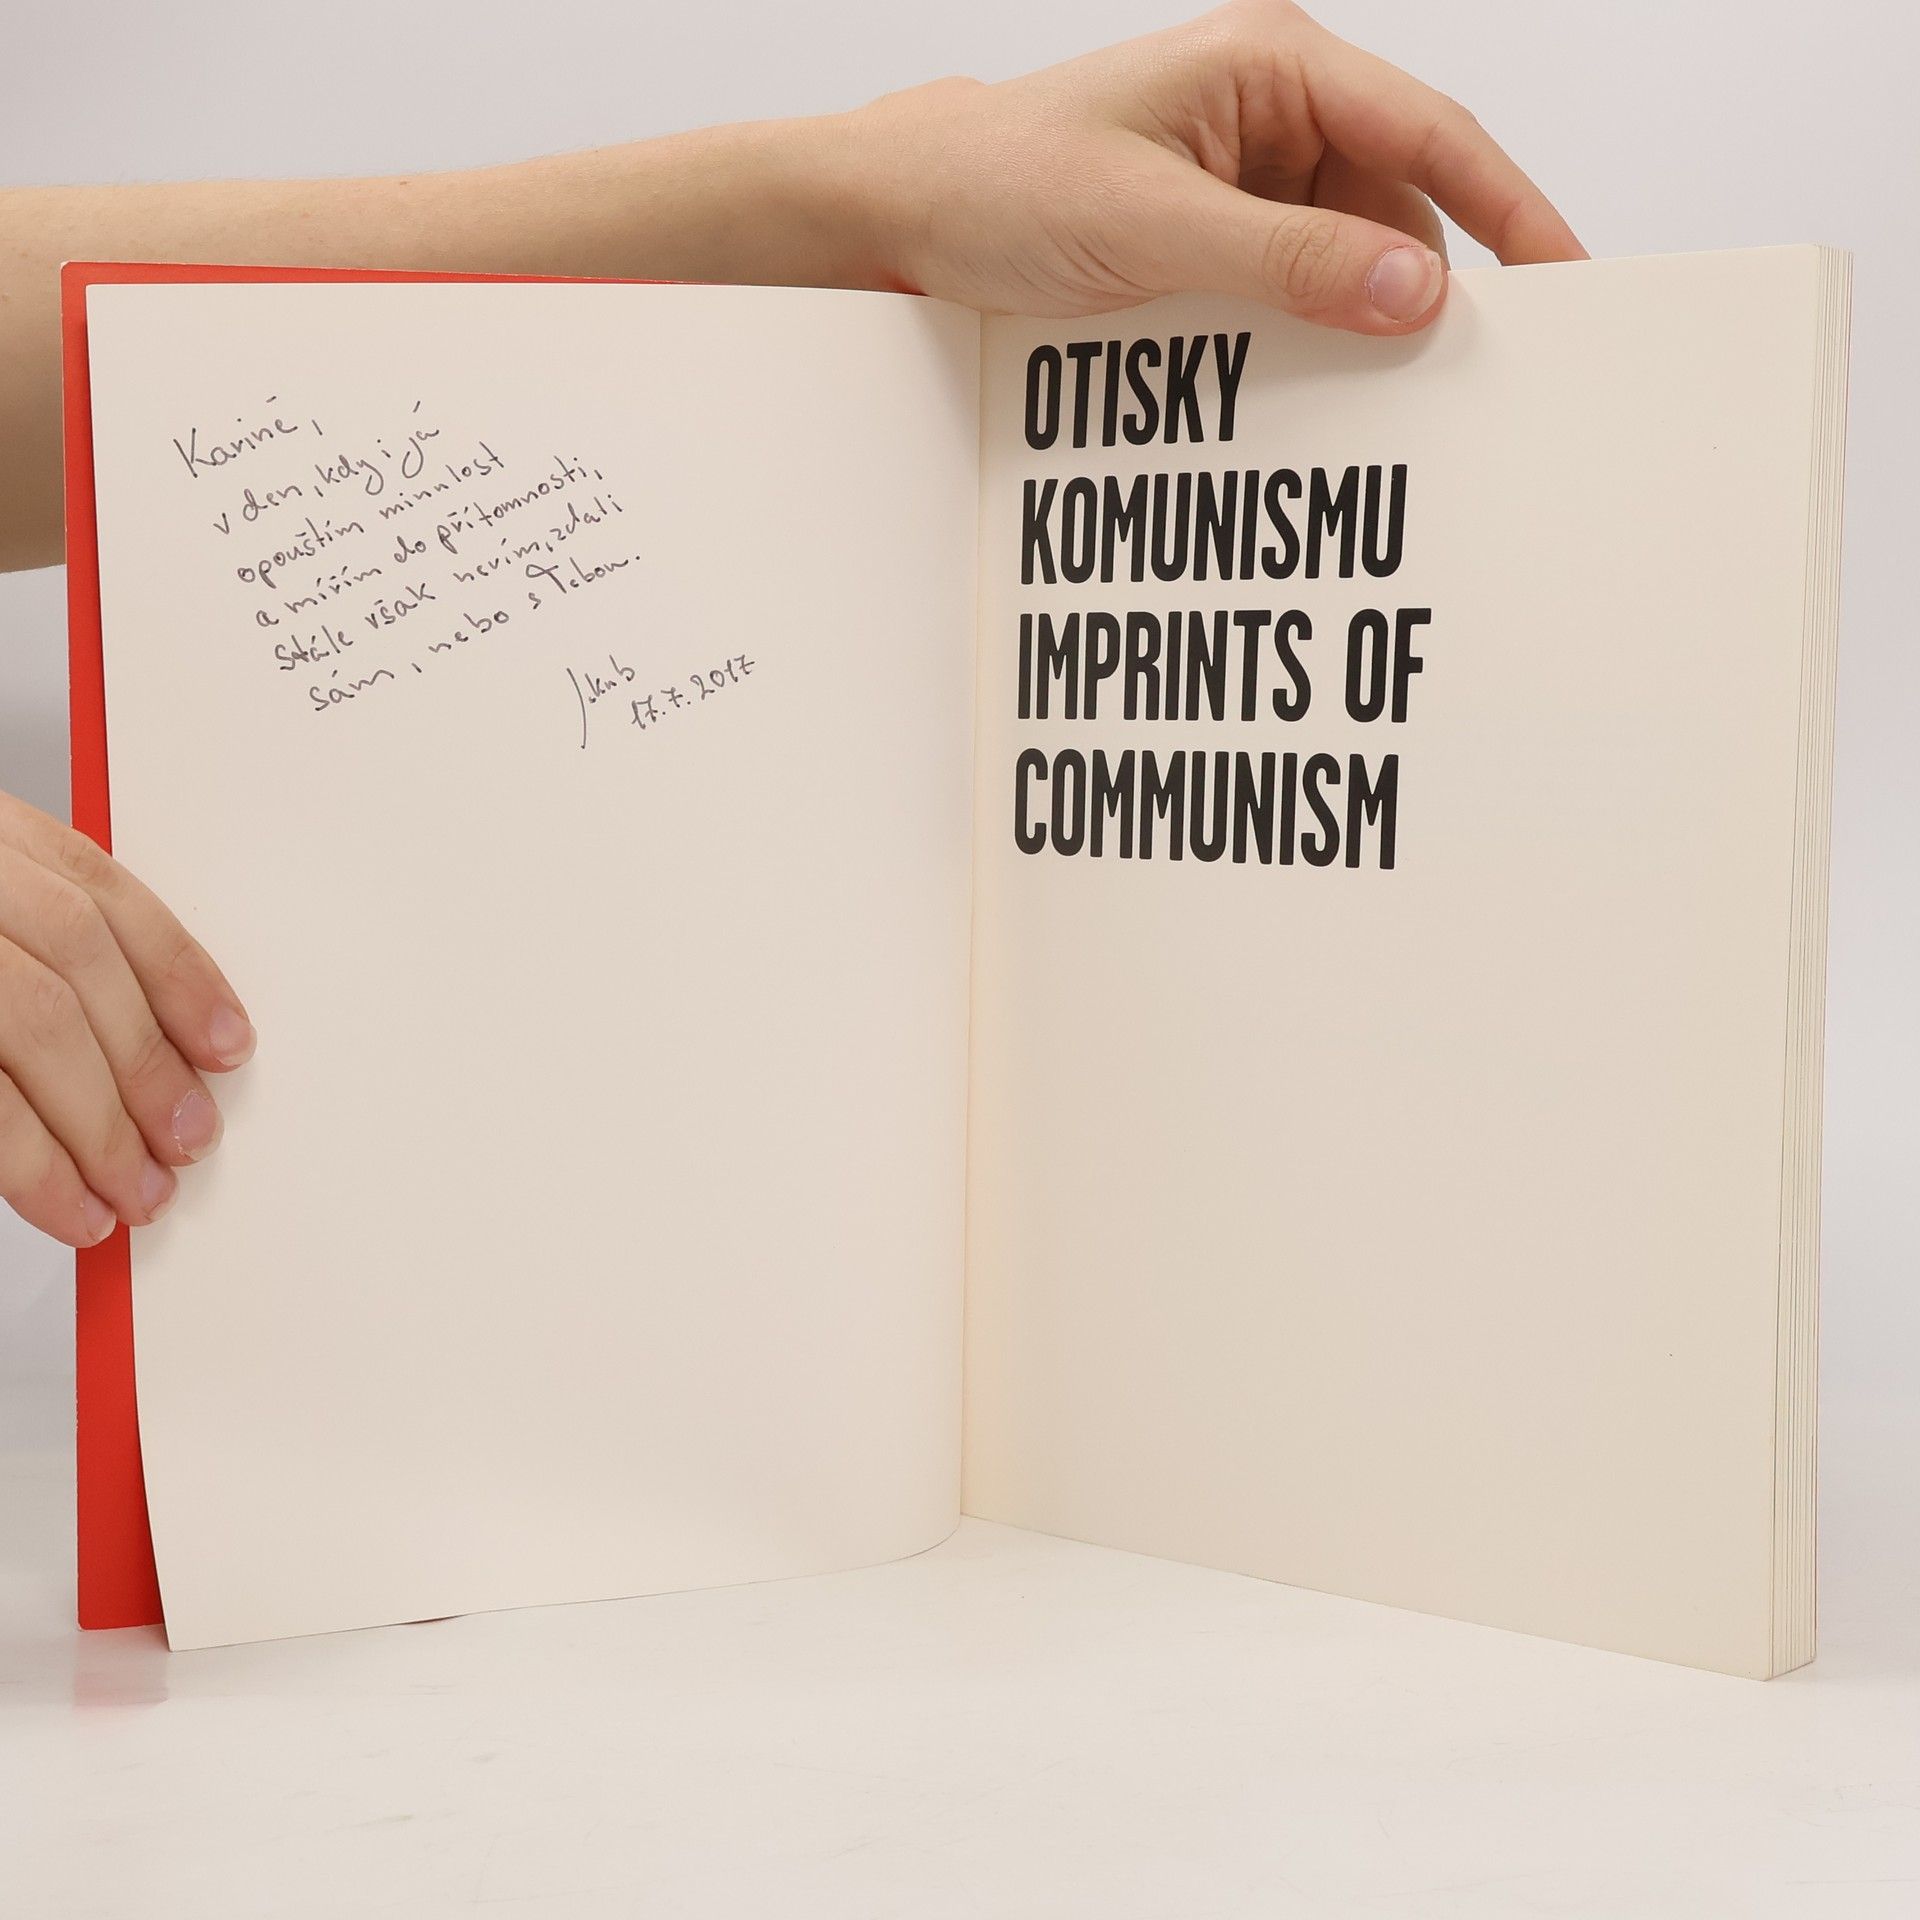 Karině,
v den, kdy i já
opouštím minulost
a mířím do přítomnosti,
stále však nevím, zdali
sám, nebo s Tebou.
Jakub
17.7.2017
OTISKY
KOMUNISMU
IMPRINTS OF
COMMUNISM